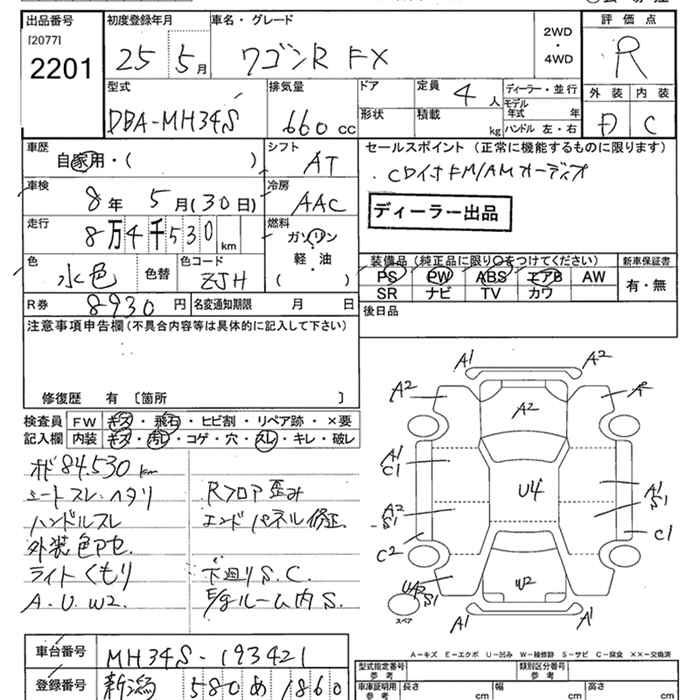 出品番号
[2077]
2201
初度登録年月
25 5月
車名・グレード
ワゴンR FX
2WD
・
4WD
評価点
R
型式
DBA-MH34S
排気量
660cc
ドア
形状
定員 4人
積載 kg
ディーラー・並行
モデル年式 年
ハンドル 左・右
外装 内装
D C
車歴
自家用・( )
シフト
AT
車検
8年 5月(30日)
冷房
AAC
走行
8万4千530km
燃料
ガソリン
軽・油
( )
色
水色
色替
色コード
ZJH
R券 8930円
名変通知期限 月 日
セールスポイント (正常に機能するものに限ります)
・CD付FM/AMオーディオ
ディーラー出品
装備品 (純正品に限り○をつけてください)
新車保証書
PS PW ABS エアB AW
SR ナビ TV カワ
有・無
後日品
注意事項申告欄 (不具合内容等は具体的に記入して下さい)
修復歴 有 〔箇所 〕
検査員
記入欄
FW キズ・飛石・ヒビ割・リペア跡・×要
内装 キズ・汚レ・コゲ・穴・スレ・キレ・破レ
84,530km
シートスレ・ヘタリ
ハンドルスレ
外装色アセ
ライトくもり
A.U.W2.
Rフロア歪み
エンドパネル修正
下廻りS.C.
E/gルーム内S.
A1 A2
A2 A2
A2
A1
C1
U4
A1
S1
A2
S1
C1
C2
W2
S1
スペア
A1 A1
A−キズ E−エクボ U−凹み W−補修跡 S−サビ C−腐食 ××−交換済
車台番号
MH34S-193421
登録番号
新潟 580 あ 1860
型式指定番号
参考
類別区分番号
参考
車庫証明用
参考
長さ cm
幅 cm
高さ cm